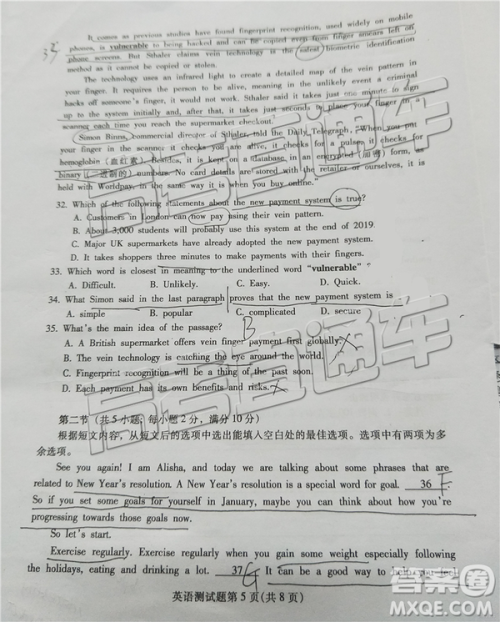 It comes as previous studies have found fingerprint recognition, used widely on mobile
phones, is vulnerable to being hacked and can be copied even from finger smears left on
phone screens. But Sthaler claims vein technology is the safest biometric identification
method as it cannot be copied or stolen.
The technology uses an infrared light to create a detailed map of the vein pattern in
your finger. It requires the person to be alive, meaning in the unlikely event a criminal
hacks off someone's finger, it would not work. Sthaler said it takes just one minute to sign
up to the system initially and, after that, it takes just seconds to place your finger in a
scanner each time you reach the supermarket checkout.
Simon Binns, commercial director of Sthaler, told the Daily Telegraph, "When you put
your finger in the scanner it checks you are alive, it checks for a pulse, it checks for
hemoglobin (血红素). Besides, it is kept on a database, in an encrypted (加密) form, as
binary (二进制的) numbers. No card details are stored with the retailer or ourselves, it is
held with Worldpay, in the same way it is when you buy online."
32. Which of the following statements about the new payment system is true?
A. Customers in London can now pay using their vein pattern.
B. About 3,000 students will probably use this system at the end of 2019.
C. Major UK supermarkets have already adopted the new payment system.
D. It takes shoppers three minutes to make payments with their fingers.
33. Which word is closest in meaning to the underlined word "vulnerable"
A. Difficult. B. Unlikely. C. Easy. D. Quick.
34. What Simon said in the last paragraph proves that the new payment system is
A. simple B. popular C. complicated D. secure
35. What's the main idea of the passage? B
A. A British supermarket offers vein finger payment first globally.
B. The vein technology is catching the eye around the world.
C. Fingerprint recognition will be a thing of the past soon.
D. Each payment has its own benefits and risks.
第二节 (共 5 小题; 每小题 2 分, 满分 10 分)
根据短文内容, 从短文后的选项中选出能填入空白处的最佳选项。选项中有两项为多
余选项。
See you again! I am Alisha, and today we are talking about some phrases that are
related to New Year's resolution. A New Year's resolution is a special word for goal. 36 F
So if you set some goals for yourself in January, maybe you can think about how you're
progressing towards those goals now.
So let's start.
Exercise regularly. Exercise regularly when you gain some weight especially following
the holidays, eating and drinking a lot. 37 G It can be a good way to help you feel
英语测试题第 5 页(共 8 页)
答案圈
MXQE.COM